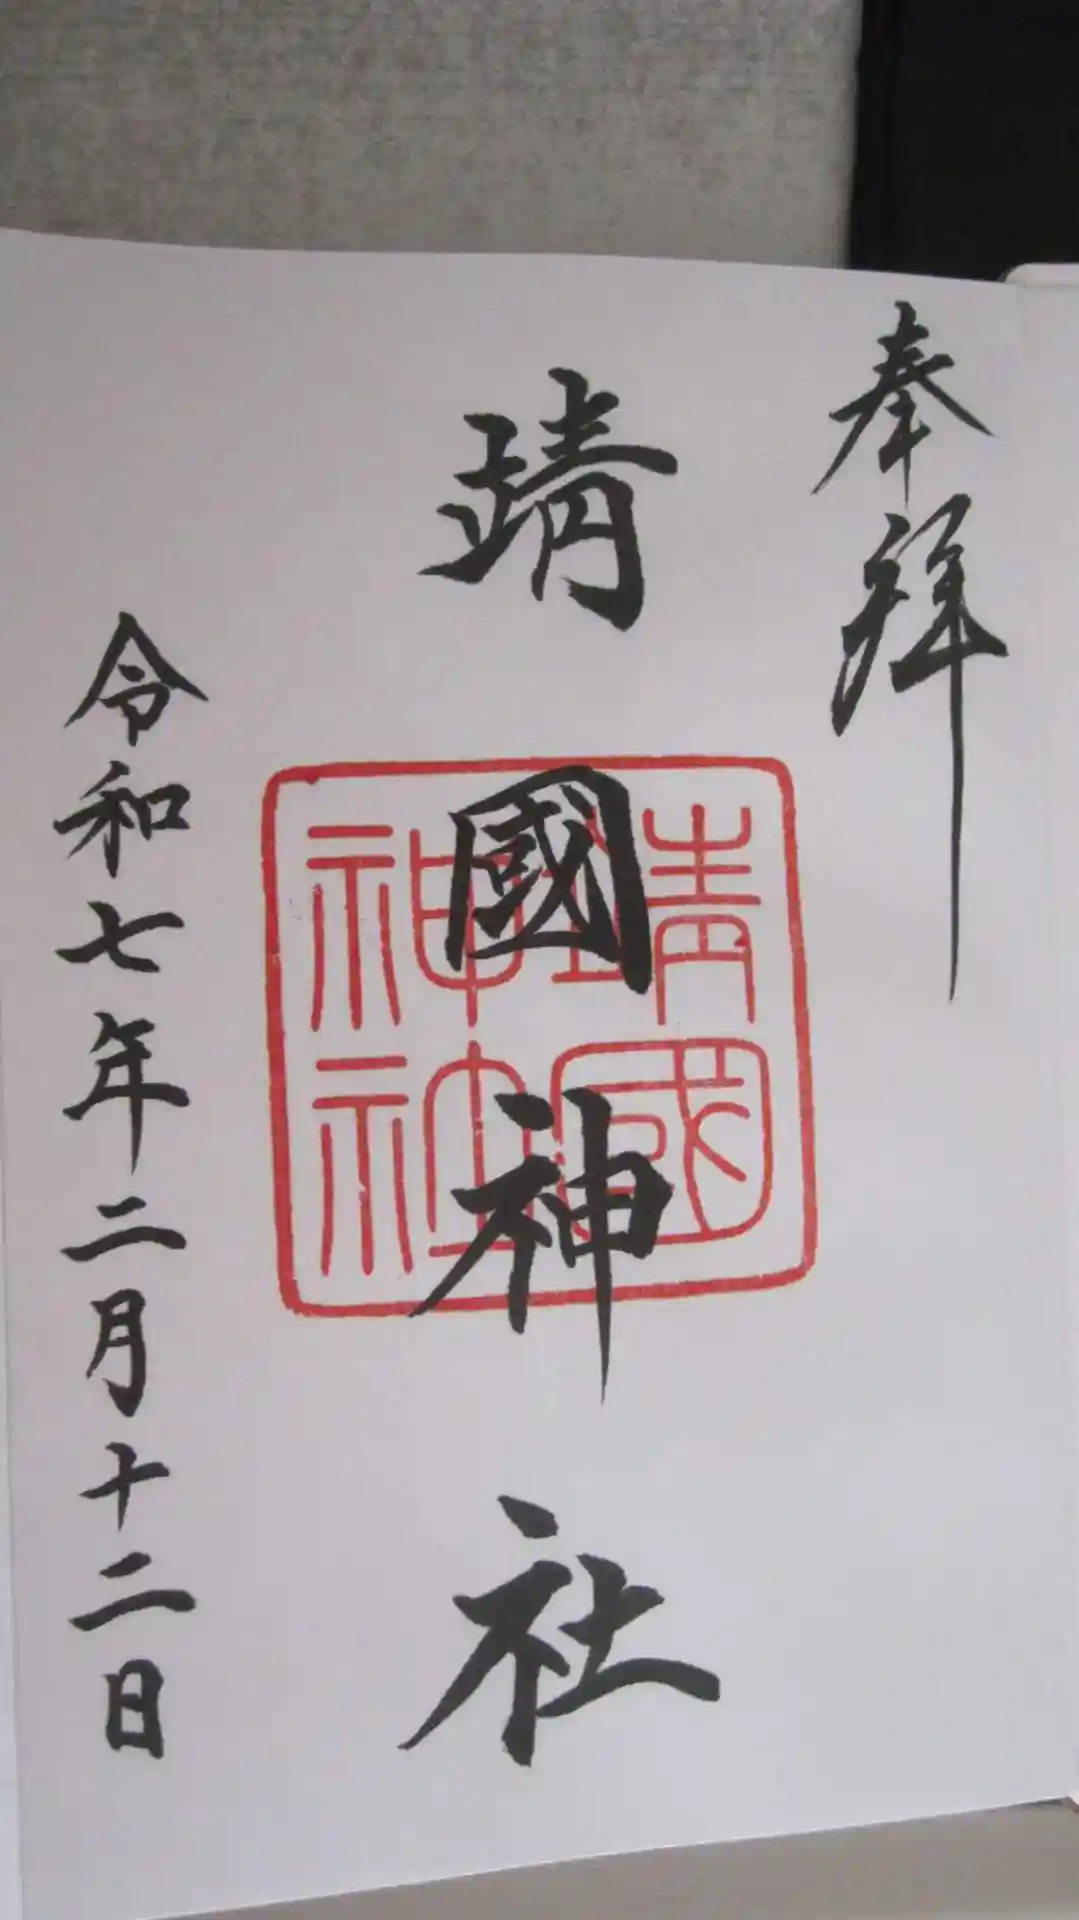 奉拜
靖國神社
靖國
神社
令和七年二月十二日